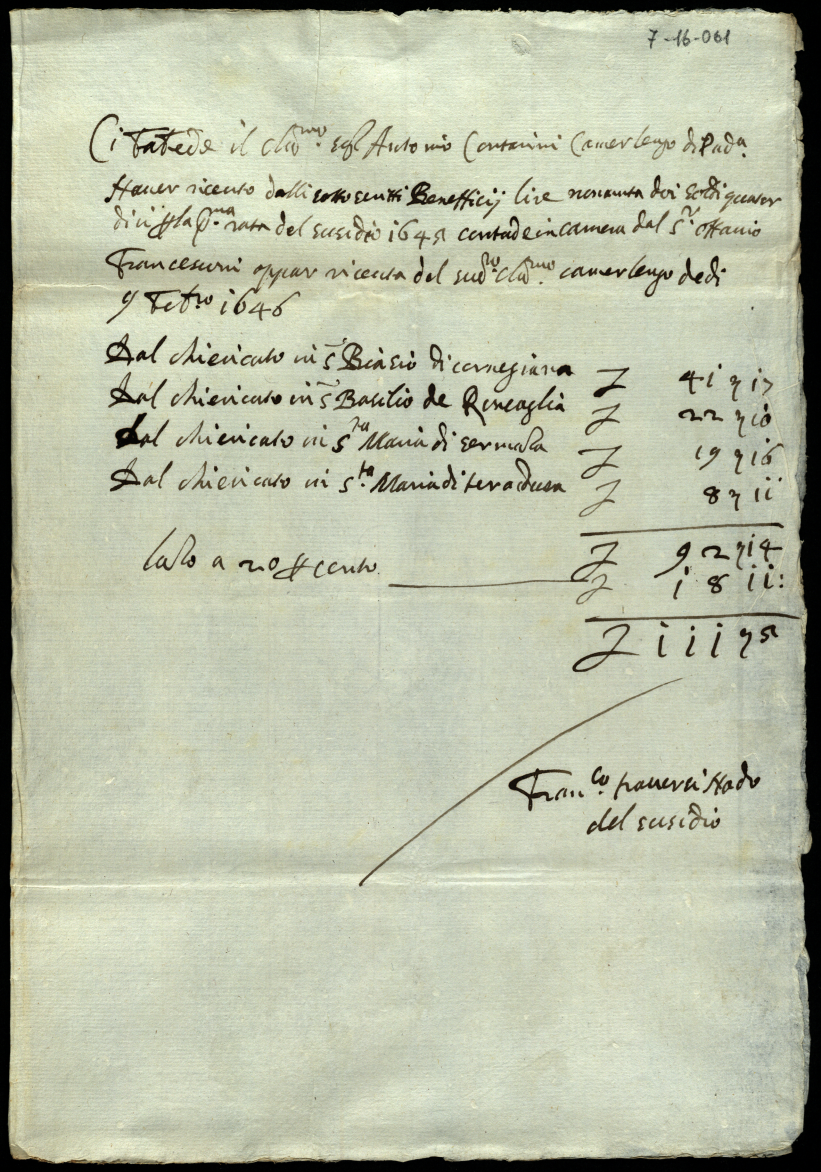 7-16-061
Ci fa fede il Cl.mo Sig.r Antonio Contarini Camerlengo di Pad.a
Haver riceuto dalli sotto scritti Benefficij lire nonanta doi soldi quator
dici p la p.ma rata del susidio 1645 contade in camera dal S.r Ottavio
Francesconi appar riceuta del sud.to Cl.mo camerlengo de di
9 feb.ro 1646
Dal chiericato in S. Biasio di cornegiana £ 41 ɳ 17
Dal chiericato in S. Basilio de Roncaglia £ 22 ɳ 10
Dal chiericato in S.ta Maria di sermola £ 19 ɳ 16
Dal chiericato in S.ta Maria di teradura £ 8 ɳ 11
£ 92 ɳ 14
lado a 20 p cento £ 18 11:
£ 111 ɳ 5
Fran.co
del susidio